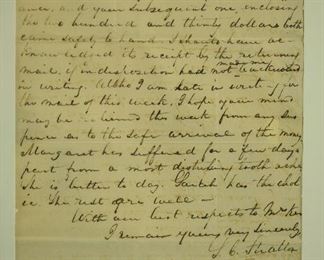 and your subsequent one enclosing
the two hundred and thirty dollars both
came safely to hand. I should have ac-
knowledged its receipt by the returning
mail, if indisposition had not
in writing. Altho I am late in writing for
the mail of this week, I hope your mind
may be relieved this week from any sus
pense as to the safe arrival of the money
Margaret has suffered for a few days
past from a most distressing tooth ache
she is better to day. Sarah has the chol
ic The rest are well —
With our best respects to Mrs
I remain yours very sincerely
S. C. Stratton